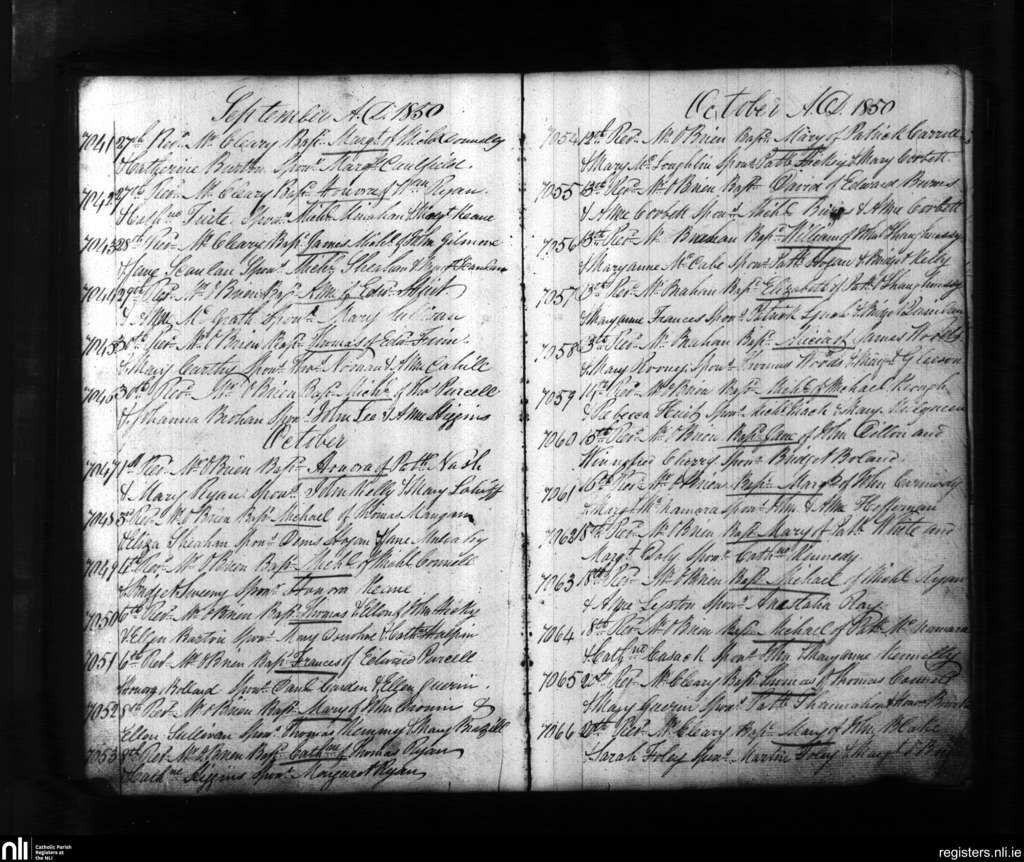 September A.D. 1850
7041 27th Revd. Mr. Cleary Bapd. Margt. of Michl. Connelly
& Catherine Burton Sponr. Margt. Caulfield
7042 27th Revd. Mr. Cleary Bapd. Honora of Ryan
& Cathne. Sponr. Michl. Minahan & Margt. Keane
7043 28th Revd. Mr. Cleary Bapd. James Michl. of John Gilmore
& Jane Scanlan Sponr. Michl. Sheahan & Scanlan
7044 29th Revd. Mr. O'Brien Bapd. Anne of Edwd.
& Anne McGrath Sponr. Mary Sullivan
7045 30th Revd. Mr. O'Brien Bapd. Thomas of Edwd.
& Mary Carthy Sponr. Thos. Noonan & Anne Cahill
7046 30th Revd. Mr. O'Brien Bapd. Michl. of Thos. Purcell
& Johanna Brohan Sponr. John Lee & Anne Higgins
October
7047 1st Revd. Mr. O'Brien Bapd. Honora of Patk. Nash
& Mary Ryan Sponr. John Kelly & Mary
7048 3d Revd. Mr. O'Brien Bapd. Michael of Thomas Mangan
& Eliza Sheahan Sponr. Denis Hogan & Jane Mulcahy
7049 Revd. Mr. O'Brien Bapd. Michl. of Michl. Connell
& Bridget Sweeny Sponr. Honora Keane
7050 6th Revd. Mr. O'Brien Bapd. Thomas & Ellen of John Hickey
& Ellen Barton Sponr. Mary & Cathne. Halpin
7051 6th Revd. Mr. O'Brien Bapd. Frances of Edward Purcell
Honora Bollard Sponr. Paul Carden & Ellen Guerin
7052 8th Revd. Mr. O'Brien Bapd. Mary of John Cronin &
Ellen Sullivan Sponr. Thomas & Mary
7053 Revd. Mr. O'Brien Bapd. Cathne. of Thomas Ryan
& Cathne. Higgins Sponr. Margaret Ryan
October A.D. 1850
7054 12th Revd. Mr. O'Brien Bapd. Mary of Patrick Carroll
& Mary McLoughlin Sponr. Patk. Hickey & Mary Corbett
7055 13th Revd. Mr. O'Brien Bapd. David of Edward Browne
& Anne Corbett Sponr. Michl. & Anne Corbett
7056 13th Revd. Mr. Bapd. William of Shaughnessy
& Maryanne McCabe Sponr. Patk. Hogan & Bridgt. Kelly
7057 13th Revd. Mr. Brahan Bapd. Elizabeth of Patk. Shaughnessy
& Maryanne Frances Sponr. Patrick Lynch & Bridgt.
7058 13th Revd. Mr. Brahan Bapd. of James Woods
& Mary Rooney Sponr. Thomas Woods & Margt. Gleeson
7059 14th Revd. Mr. O'Brien Bapd. Michl. of Michael Keough
& Rebecca Sponr. Michl. & Mary
7060 15th Revd. Mr. O'Brien Bapd. Jane of John Cotton and
Winnifred Cherry Sponr. Bridget Boland
7061 16th Revd. Mr. O'Brien Bapd. Margt. of John Carmody
& Margt. McNamara Sponr. John & Anne Heffernan
7062 18th Revd. Mr. O'Brien Bapd. Mary of Patk. White and
Margt. Daly Sponr. Cathne. Kennedy
7063 18th Revd. Mr. O'Brien Bapd. Michael of Michl. Ryan
& Anne Sponr. Anastatia Ray
7064 18th Revd. Mr. O'Brien Bapd. Michael of Patk. McNamara
& Cathne. Cusack Sponr. John & Maryanne Kennelly
7065 20th Revd. Mr. Cleary Bapd. Thomas of Thomas
& Mary Guerin Sponr. Patk. &
7066 20th Revd. Mr. Cleary Bapd. Mary of John Blake
Sarah Foley Sponr. Martin Foley &
nli
Catholic Parish
Registers at
the NLI
registers.nli.ie